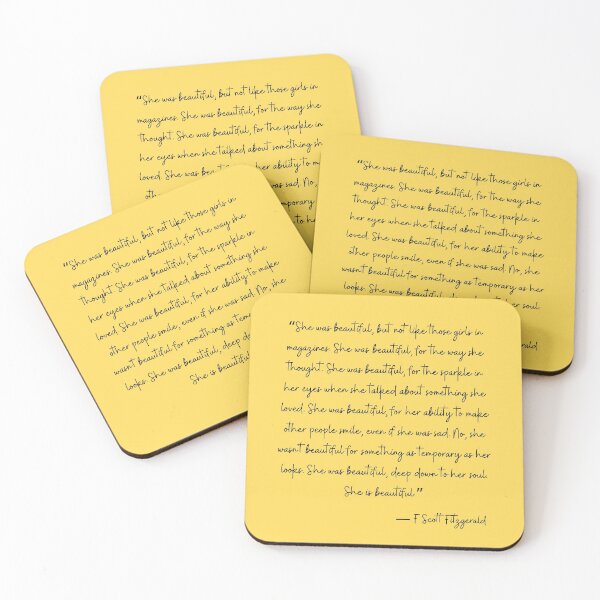 "She was beautiful, but not like those girls in
magazines. She was beautiful, for the way she
thought. She was beautiful, for the sparkle in
her eyes when she talked about something she
loved. She was her ability to make
was sad. No,
temporary
to her
"She was beautiful, but not like those girls in
magazines. She was beautiful, for the way she
thought. She was beautiful, for the sparkle in
her eyes when she talked about something she
loved. She was beautiful, for her ability to make
other people smile, even if she was sad. No, she
wasn't beautiful for something as temporary as her
looks. She was beautiful, deep down to her soul.
"She was beautiful, but not like those girls in
magazines. She was beautiful, for the way she
thought. She was beautiful, for the sparkle in
her eyes when she talked about something she
loved. She was beautiful, for her ability to make
other people smile, even if she was sad. No, she
wasn't beautiful for something as
looks. She was beautiful, deep
She is beautiful
"She was beautiful, but not like those girls in
magazines. She was beautiful, for the way she
thought. She was beautiful, for the sparkle in
her eyes when she talked about something she
loved. She was beautiful, for her ability to make
other people smile, even if she was sad. No, she
wasn't beautiful for something as temporary as her
looks. She was beautiful, deep down to her soul.
She is beautiful"
— F Scott Fitzgerald